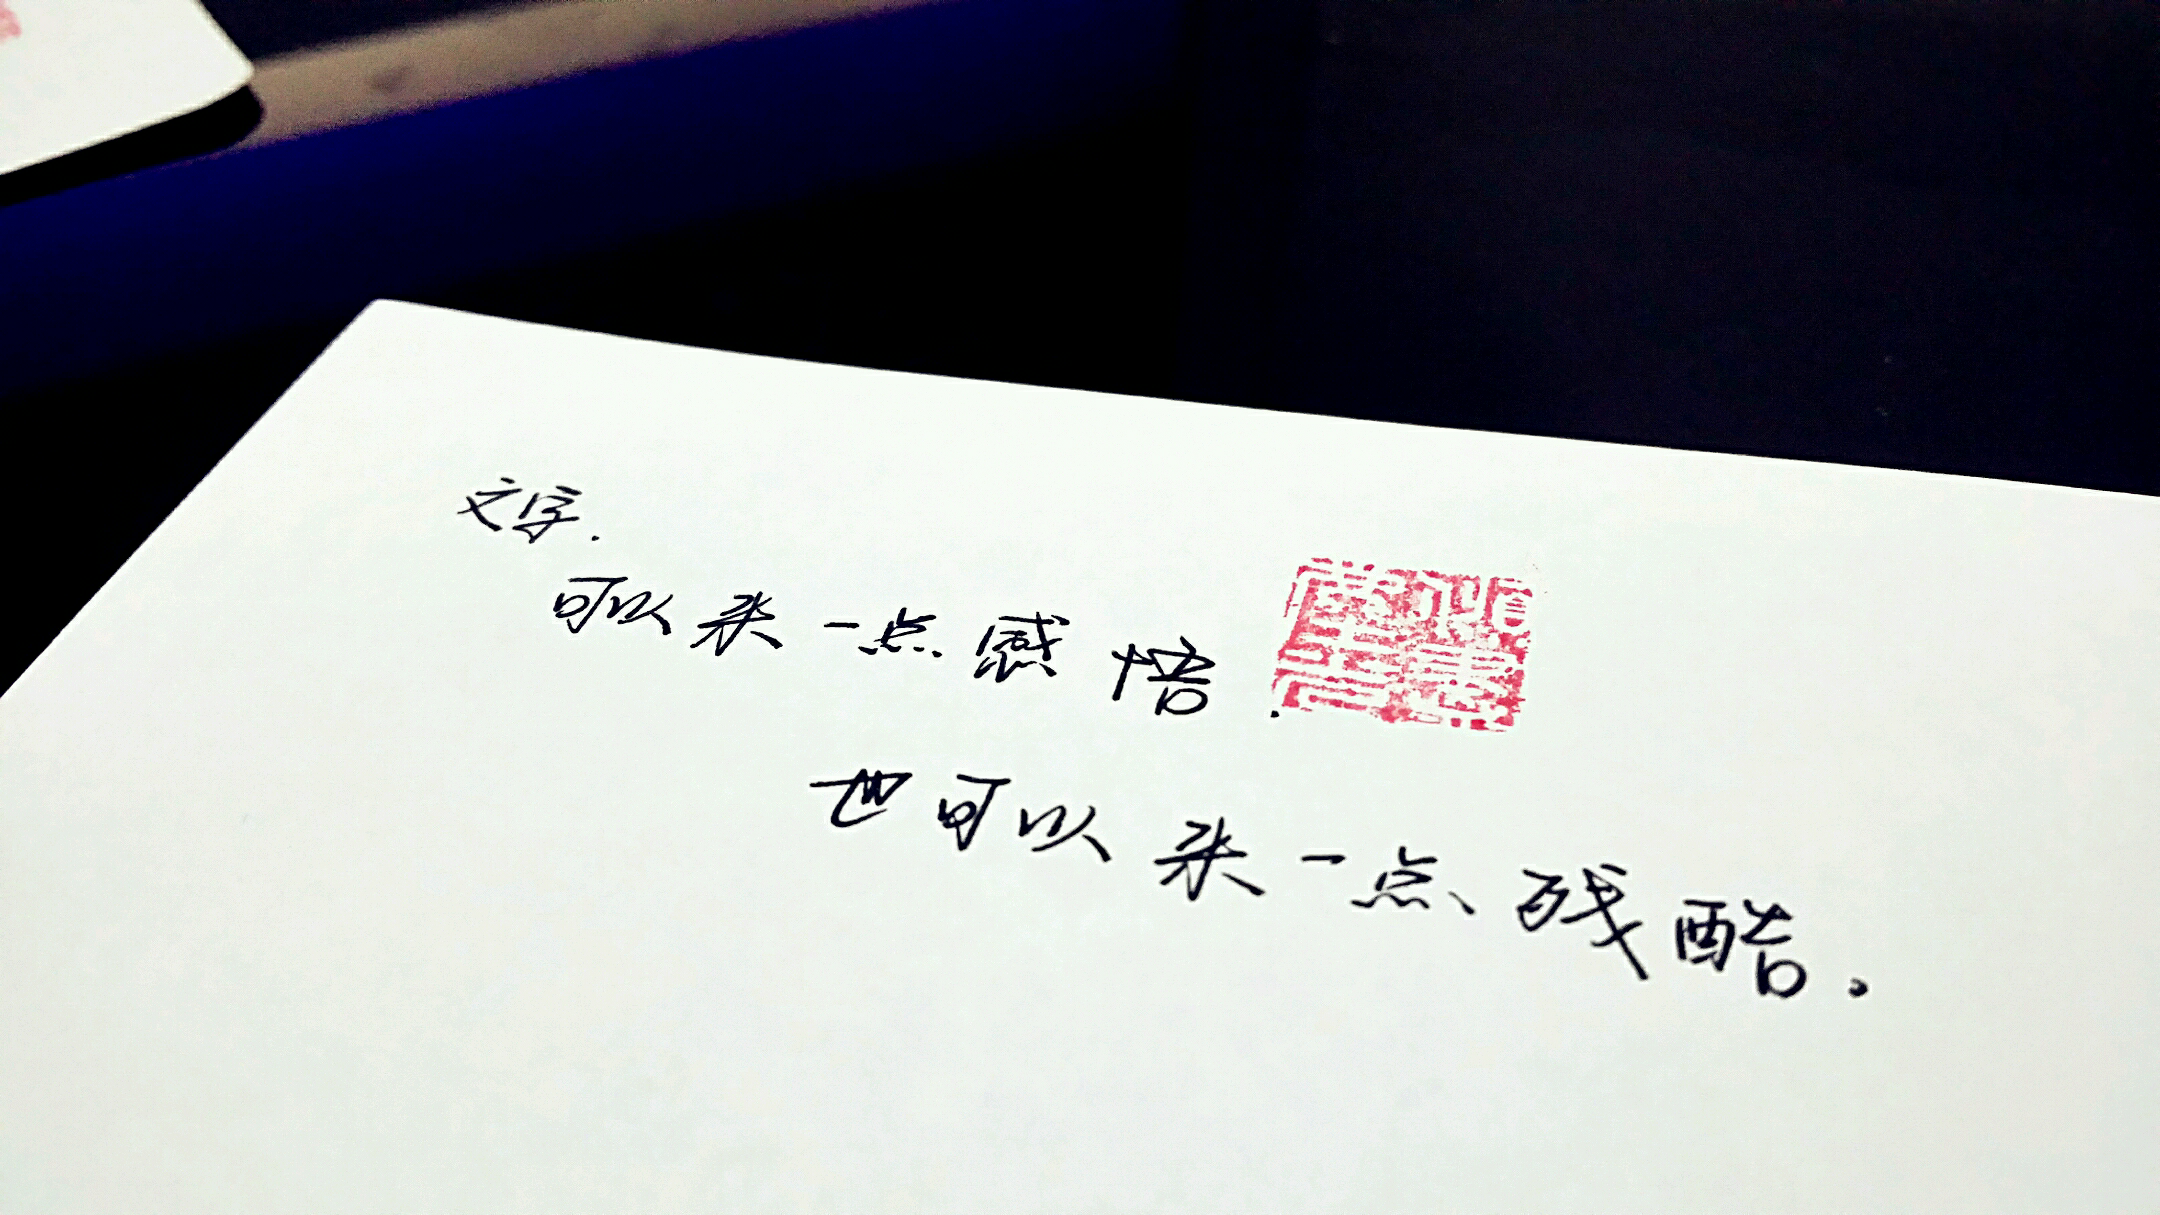 文字.
可以来一点感悟.
也可以来一点残酷。